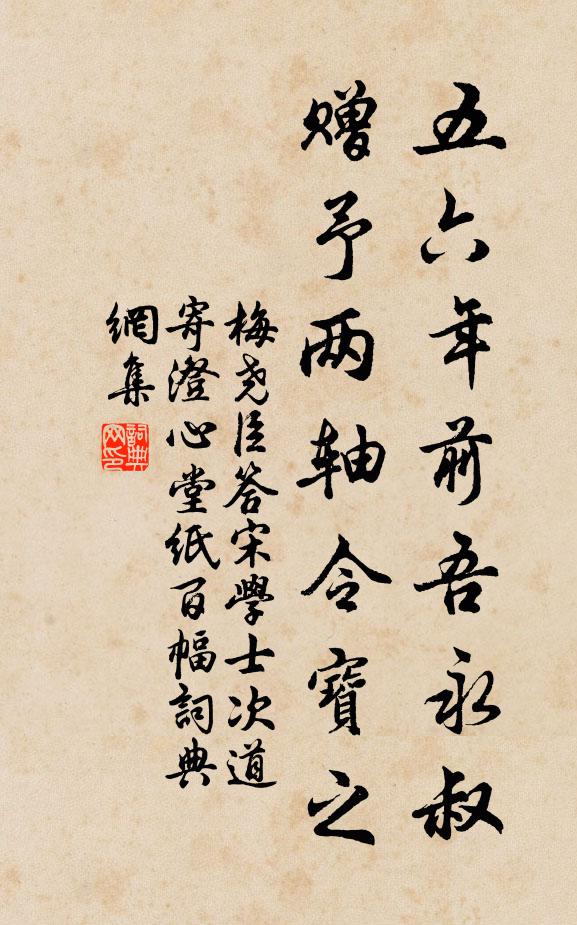 五六年前吾永叔
赠予两轴令寶之
梅尧臣答宋學士次道
寄澄心堂紙百幅詞典
網集
詞典
网印